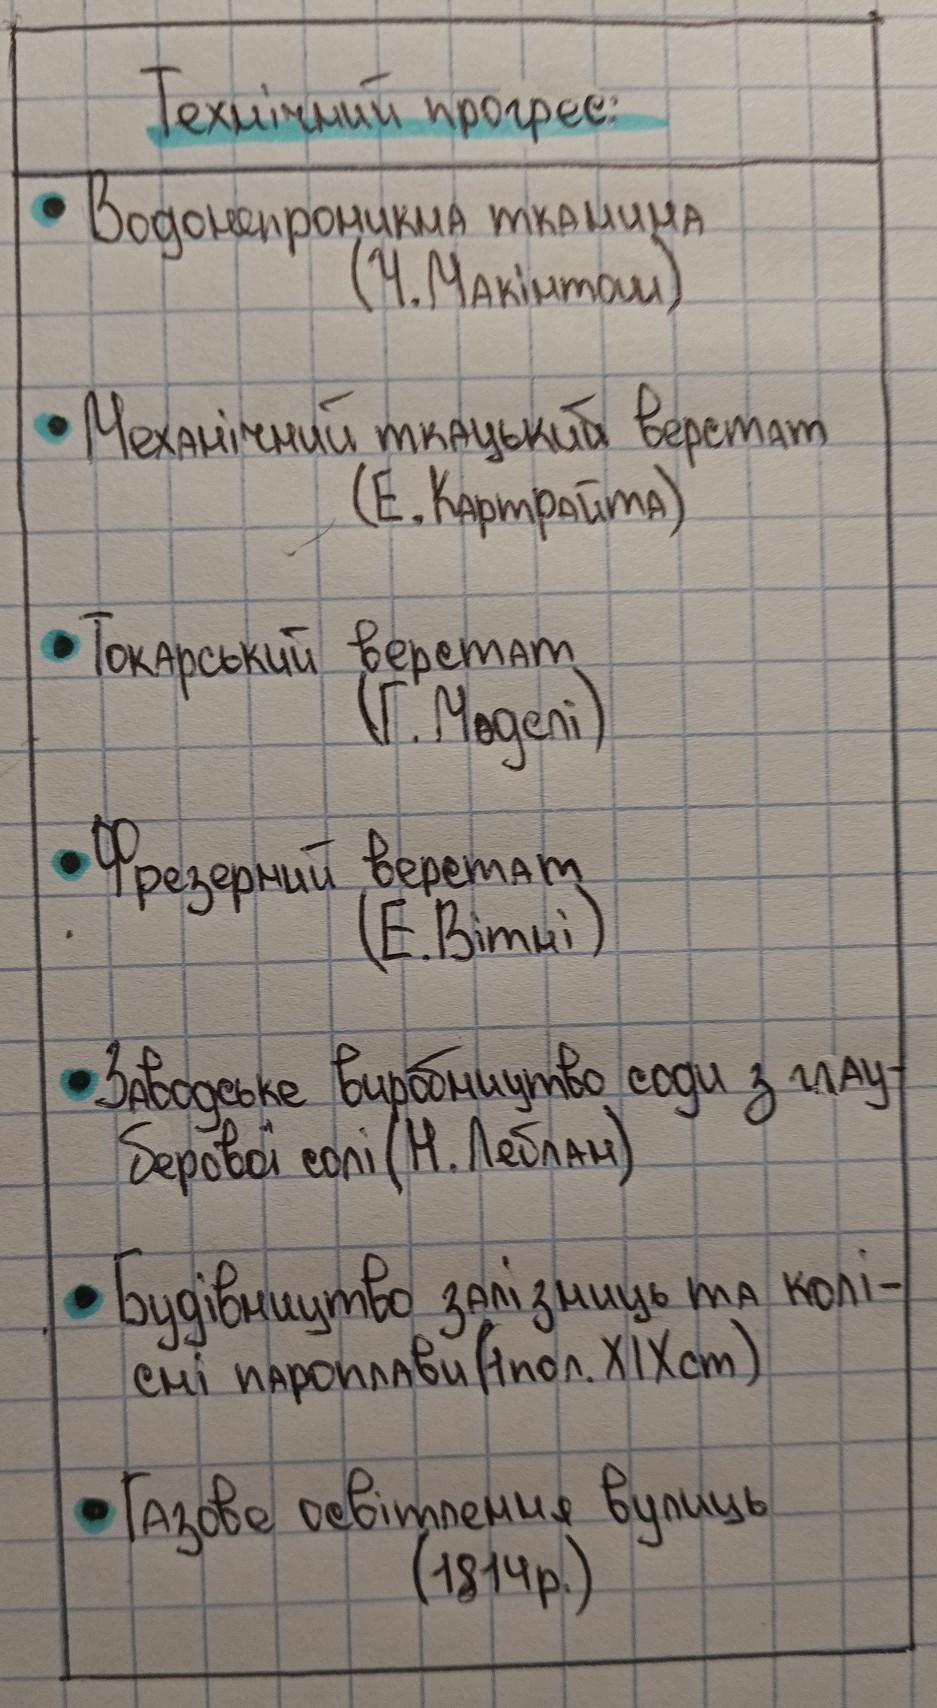 Технічний прогрес:
• Водонепроникна тканина
(Ч. Макінтош)
• Механічний ткацький верстат
(Е. Картрайта)
• Токарський верстат
(Г. Моделі)
• Фрезерний верстат
(Е. Вітні)
• Заводське вирбоництво соди з глау-
берової солі (Н. Леблан)
• Будівництво залізниць та колі-
сні пароплави (1 пол. XIX ст)
• Газове освітлення вулиць
(1814р.)